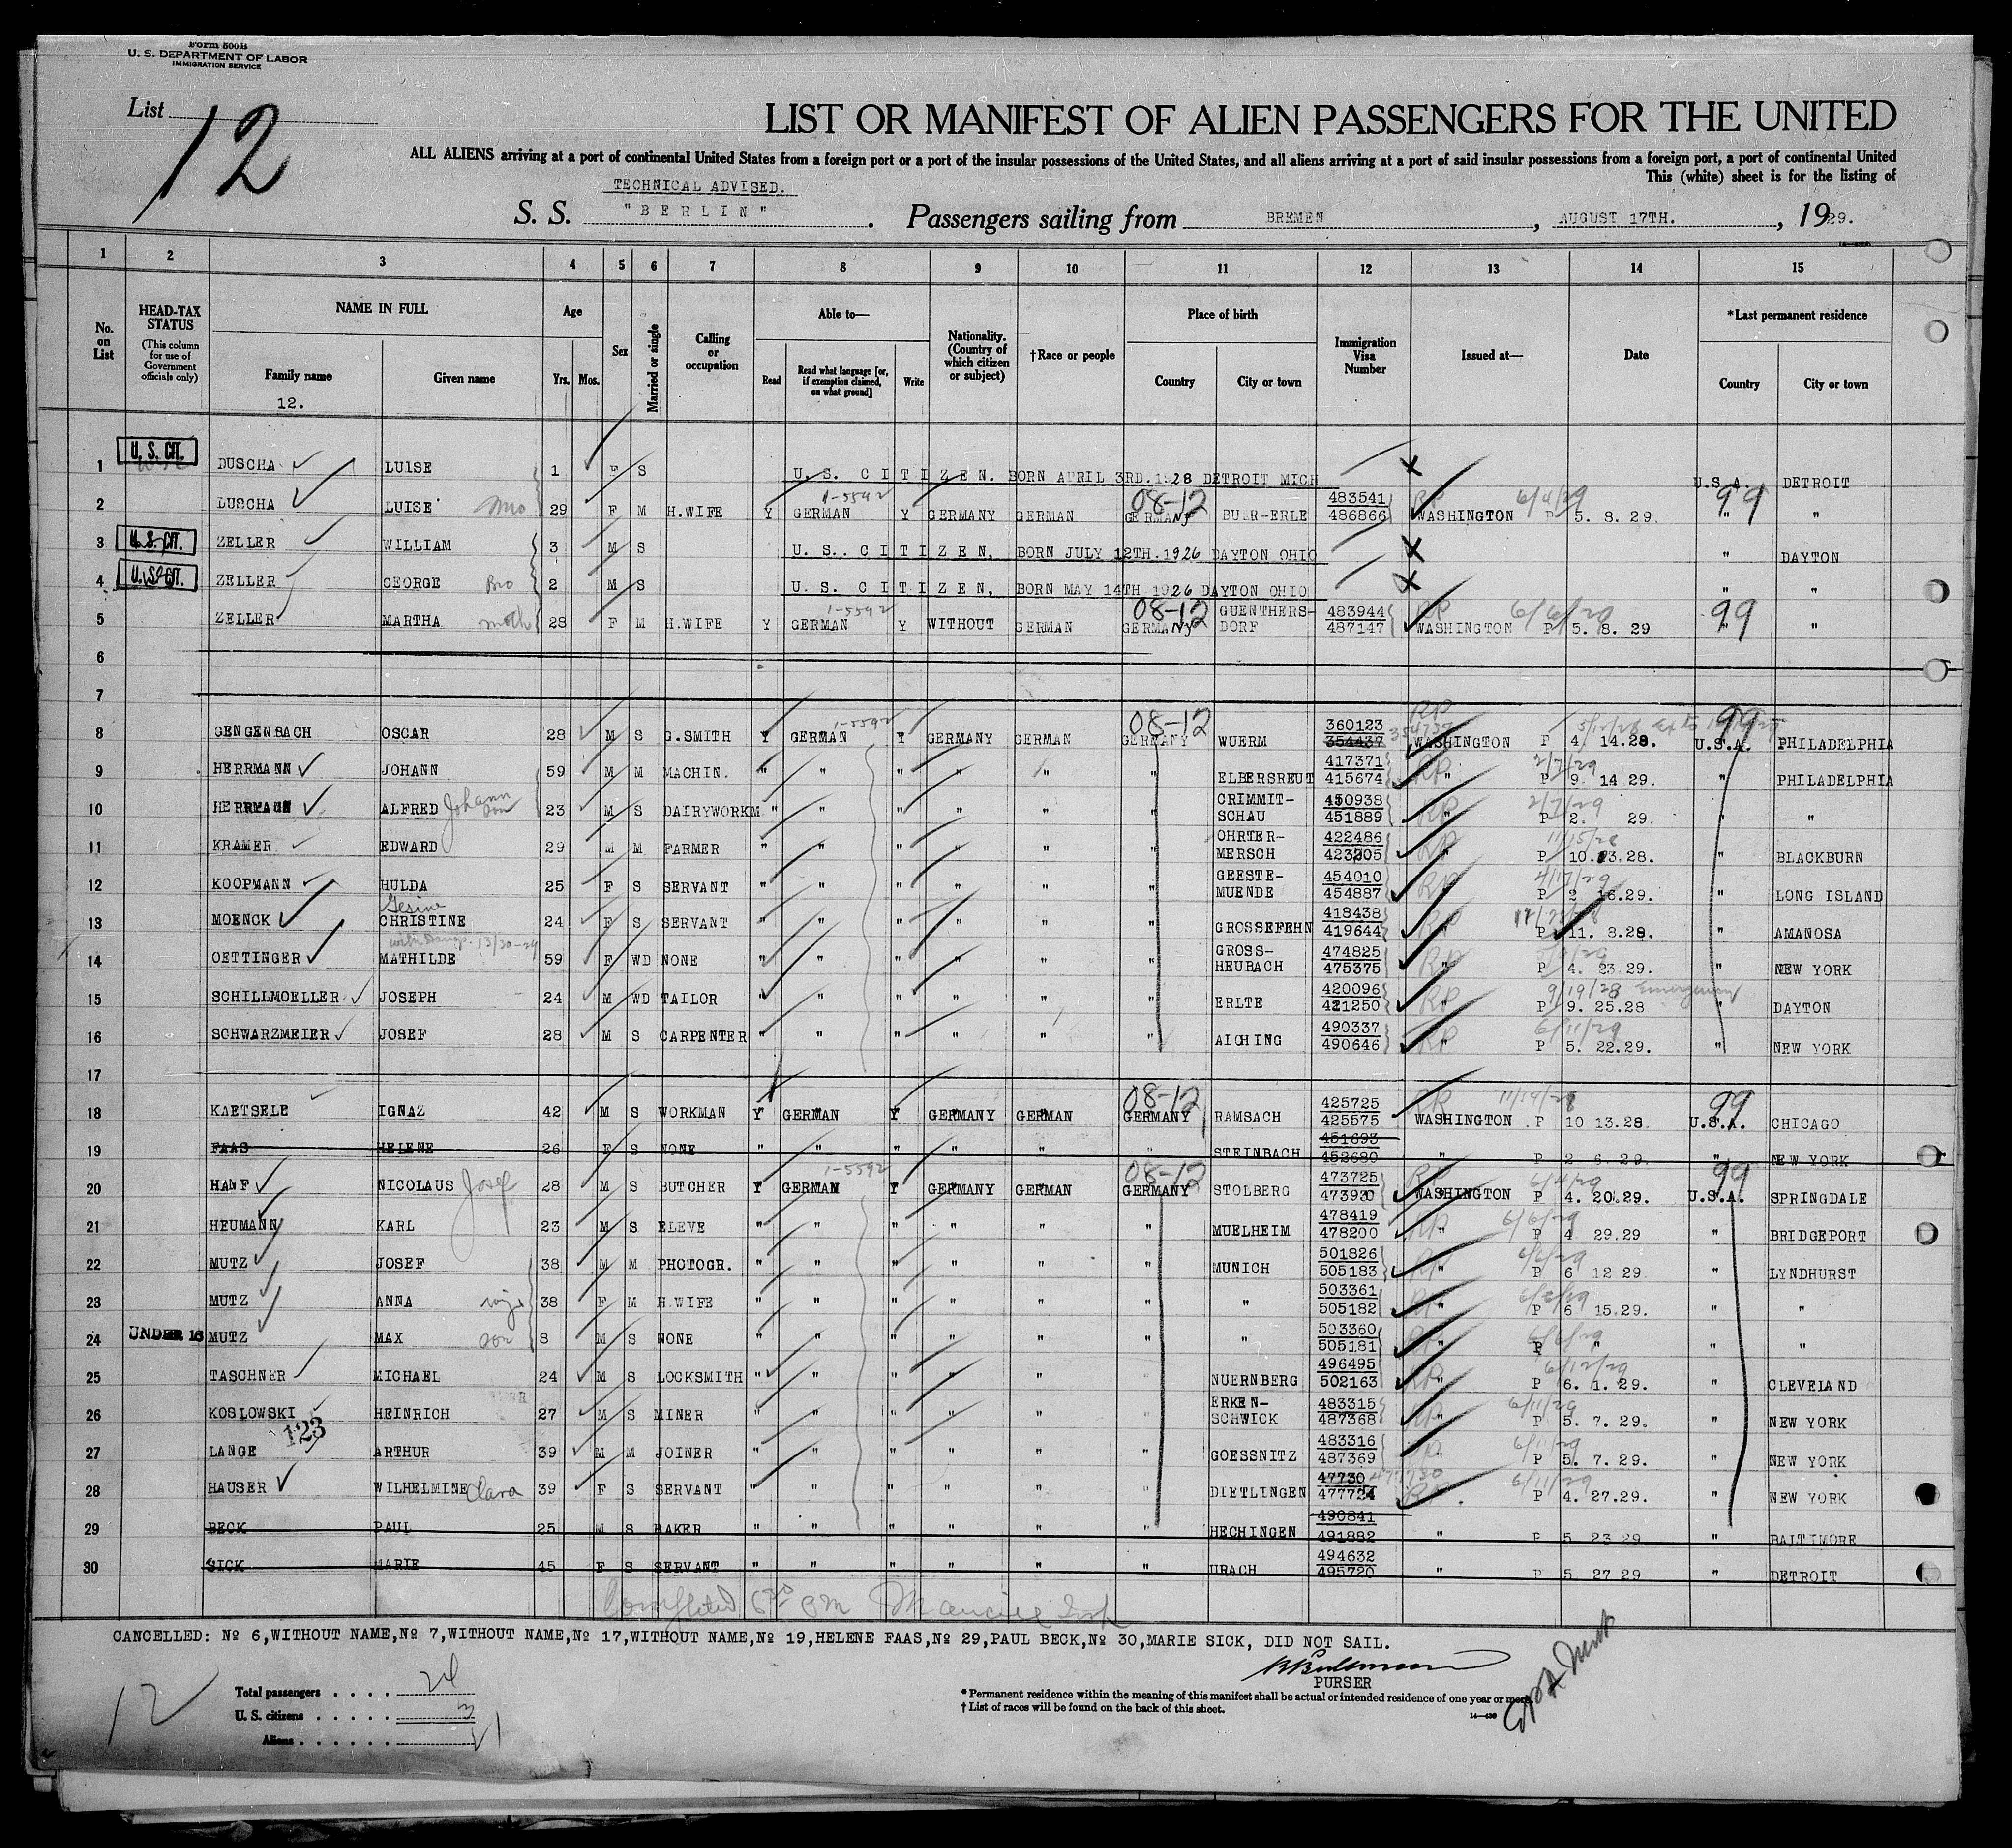 Form 500B
U. S. DEPARTMENT OF LABOR
IMMIGRATION SERVICE
List 12
LIST OR MANIFEST OF ALIEN PASSENGERS FOR THE UNITED
ALL ALIENS arriving at a port of continental United States from a foreign port or a port of the insular possessions of the United States, and all aliens arriving at a port of said insular possessions from a foreign port, a port of continental United
This (white) sheet is for the listing of
TECHNICAL ADVISED.
S. S. "BERLIN". Passengers sailing from BREMEN, AUGUST 17TH., 1929.
1 2 3 4 5 6 7 8 9 10 11 12 13 14 15
No. on List
HEAD-TAX STATUS
(This column for use of Government officials only)
NAME IN FULL
Family name
Given name
12.
Age
Yrs. Mos.
Sex
Married or single
Calling or occupation
Able to—
Read
Read what language [or, if exemption claimed, on what ground]
Write
Nationality. (Country of which citizen or subject)
†Race or people
Place of birth
Country
City or town
Immigration Visa Number
Issued at—
Date
*Last permanent residence
Country
City or town
1 U. S. CIT. DUSCHA LUISE 1 F S U. S. CITIZEN. BORN APRIL 3RD. 1928 DETROIT MICH U.S.A. DETROIT
2 DUSCHA LUISE 29 F M H.WIFE Y GERMAN 1-5592 Y GERMANY GERMAN 08-12 GERMANY BUER-ERLE 483541 486866 RP WASHINGTON 6/4/29 P 5. 8. 29. 99 " "
3 U. S. CIT. ZELLER WILLIAM 3 M S U.S. CITIZEN, BORN JULY 12TH. 1926 DAYTON OHIO " DAYTON
4 U. S. CIT. ZELLER GEORGE Bro 2 M S U.S. CITIZEN, BORN MAY 14TH 1926 DAYTON OHIO " "
5 ZELLER MARTHA moth 28 F M H.WIFE Y GERMAN 1-5592 Y WITHOUT GERMAN 08-12 GERMANY GUENTHERS-DORF 483944 487147 RP WASHINGTON 6/6/29 P 5. 8. 29 99 " "
6
7
8 GENGENBACH OSCAR 28 M S G.SMITH Y GERMAN 1-5592 Y GERMANY GERMAN 08-12 GERMANY WUERM 360123 354437 354737 RP WASHINGTON P 4. 14.28. 99 U.S.A. PHILADELPHIA
9 HERRMANN JOHANN 59 M M MACHIN. " " " " " " ELBERSREUT 417371 415674 RP " 2/7/29 P 9. 14 29. " PHILADELPHIA
10 HERRMANN ALFRED Johann son 23 M S DAIRYWORKM " " " " " " CRIMMIT-SCHAU 450938 451889 RP " 2/7/29 P 2. 29. " "
11 KRAMER EDWARD 29 M M FARMER " " " " " " OHRTER-MERSCH 422486 423205 RP " 11/15/28 P 10. 23.28. " BLACKBURN
12 KOOPMANN HULDA 25 F S SERVANT " " " " " " GEESTE-MUENDE 454010 454887 RP " 4/17/29 P 2 16.29. " LONG ISLAND
13 MOENCK Gesine CHRISTINE 24 F S SERVANT " " " " " " GROSSEFEHN 418438 419644 RP " P 11. 8.28. " AMANOSA
14 OETTINGER MATHILDE 59 F WD NONE " " " " " " GROSS-HEUBACH 474825 475375 RP " P 4. 23.29. " NEW YORK
15 SCHILLMOELLER JOSEPH 24 M WD TAILOR " " " " " " ERLTE 420096 421250 RP " 9/19/28 Emergency P 9. 25.28 " DAYTON
16 SCHWARZMEIER JOSEF 28 M S CARPENTER " " " " " " AICHING 490337 490646 RP " 6/11/29 P 5. 22.29. " NEW YORK
17
18 KAETSELE IGNAZ 42 M S WORKMAN Y GERMAN Y GERMANY GERMAN 08-12 GERMANY RAMSACH 425725 425575 RP WASHINGTON P 10 13.28. 99 U.S.A. CHICAGO
19 FAAS HELENE 26 F S NONE " " " " " " STEINBACH 451693 452680 " P 2 6. 29. " NEW YORK
20 HANF NICOLAUS Josef 28 M S BUTCHER Y GERMAN 1-5592 Y GERMANY GERMAN 08-12 GERMANY STOLBERG 473725 473930 RP WASHINGTON 6/4/29 P 4. 20.29. 99 U.S.A. SPRINGDALE
21 HEUMANN KARL 23 M S ELEVE " " " " " " MUELHEIM 478419 478200 RP " 6/6/29 P 4 29.29 " BRIDGEPORT
22 MUTZ JOSEF 38 M M PHOTOGR. " " " " " " MUNICH 501826 505183 RP " P 6 12 29. " LYNDHURST
23 MUTZ ANNA wife 38 F M H.WIFE " " " " " " " 503361 505182 RP " P 6 15.29. " "
24 UNDER 16 MUTZ MAX son 8 M S NONE " " " " " " 503360 505181 RP " P " " "
25 TASCHNER MICHAEL 24 M S LOCKSMITH " " " " " " NUERNBERG 496495 502163 RP " 6/12/29 P 6. 1. 29. " CLEVELAND
26 KOSLOWSKI HEINRICH 27 M S MINER " " " " " " ERKEN-SCHWICK 483315 487368 RP " 6/11/29 P 5. 7. 29. " NEW YORK
123
27 LANGE ARTHUR 39 M M JOINER " " " " " " GOESSNITZ 483316 487369 RP " 6/11/29 P 5. 7. 29. " NEW YORK
28 HAUSER WILHELMINE Clara 39 F S SERVANT " " " " " " DIETLINGEN 47730 477730 477724 RP 6/11/29 P 4. 27.29. " NEW YORK
29 BECK PAUL 25 M S BAKER " " " " " " HECHINGEN 490841 491882 " P 5 23 29 " BALTIMORE
30 SICK MARIE 45 F S SERVANT " " " " " " URACH 494632 495720 " P 5 27 29 " DETROIT
CANCELLED: № 6,WITHOUT NAME,№ 7,WITHOUT NAME,№ 17,WITHOUT NAME,№ 19,HELENE FAAS,№ 29,PAUL BECK,№ 30,MARIE SICK, DID NOT SAIL.
PURSER
12
Total passengers . . . . . 24
U. S. citizens . . . . . 3
Aliens . . . . . . 21
*Permanent residence within the meaning of this manifest shall be actual or intended residence of one year or more.
†List of races will be found on the back of this sheet.